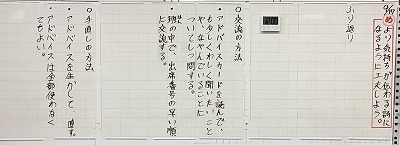 9/17
め より気持ちが伝わる詩に
なるように工夫しよう。
ふり返り
○交流の方法
・アドバイスカードを読んで、
もう少しくわしく聞いたいこと
や、なやんでいることに
ついてしつ問する。
・班の中で、出席番号の早い順
に交流する。
○手直しの方法
・アドバイスを生かして直す。
・アドバイスは全部使わなく
てもよい。